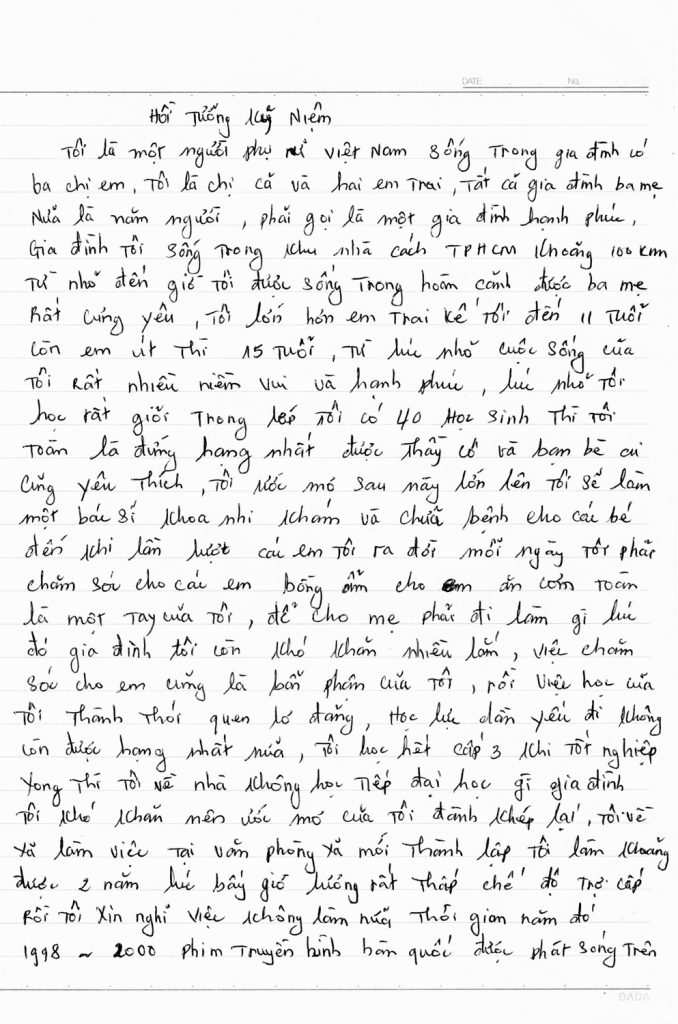 DATE . . No.
Hồi Tưởng Kỹ Niệm
Tôi là một người phụ nữ Việt Nam sống Trong gia đình có
ba chị em, Tôi là chị cả và hai em Trai, Tất cả gia đình ba mẹ
Nữa là năm người, phải gọi là một gia đình hạnh phúc,
Gia đình Tôi sống Trong khu nhà cách TPHCM Khoảng 100 Km
Từ nhỏ đến giờ Tôi được sống Trong hoàn cảnh được ba mẹ
Rất cưng yêu, Tôi lớn hơn em Trai kế Tôi đến 11 Tuổi
Còn em út Thì 15 Tuổi, Từ lúc nhỏ cuộc sống của
Tôi Rất nhiều niềm vui và hạnh phúc, lúc nhỏ Tôi
học rất giỏi Trong lớp Tôi có 40 Học sinh Thì Tôi
Toàn là đứng hạng nhất được Thầy cô và bạn bè ai
Cũng yêu Thích, Tôi ước mơ sau này lớn lên Tôi sẽ làm
một bác sĩ khoa nhi khám và chữa bệnh cho các bé
đến khi lần lượt các em Tôi ra đời mỗi ngày Tôi phải
chăm sóc cho các em bồng ẵm cho em ăn cơm Toàn
là một Tay của Tôi, để cho mẹ phải đi làm gì lúc
đó gia đình tôi còn khó khăn nhiều lắm, việc chăm
sóc cho em cũng là bổn phận của Tôi, rồi việc học của
Tôi Thành Thói quen lơ đãng, Học lực dần yếu đi không
còn được hạng nhất nữa, Tôi học hết cấp 3 khi Tốt nghiệp
xong Thì Tôi về nhà không học Tiếp đại học gì gia đình
Tôi khó khăn nên ước mơ của Tôi đành khép lại, Tôi về
xã làm việc Tại văn phòng xã mới Thành lập Tôi làm khoảng
được 2 năm lúc bấy giờ lương rất Thấp chế độ Trợ cấp
Rồi Tôi xin nghỉ việc không làm nữa Thời gian năm đó
1998 ~ 2000 phim Truyền hình hàn quốc được phát sóng Trên
DADA